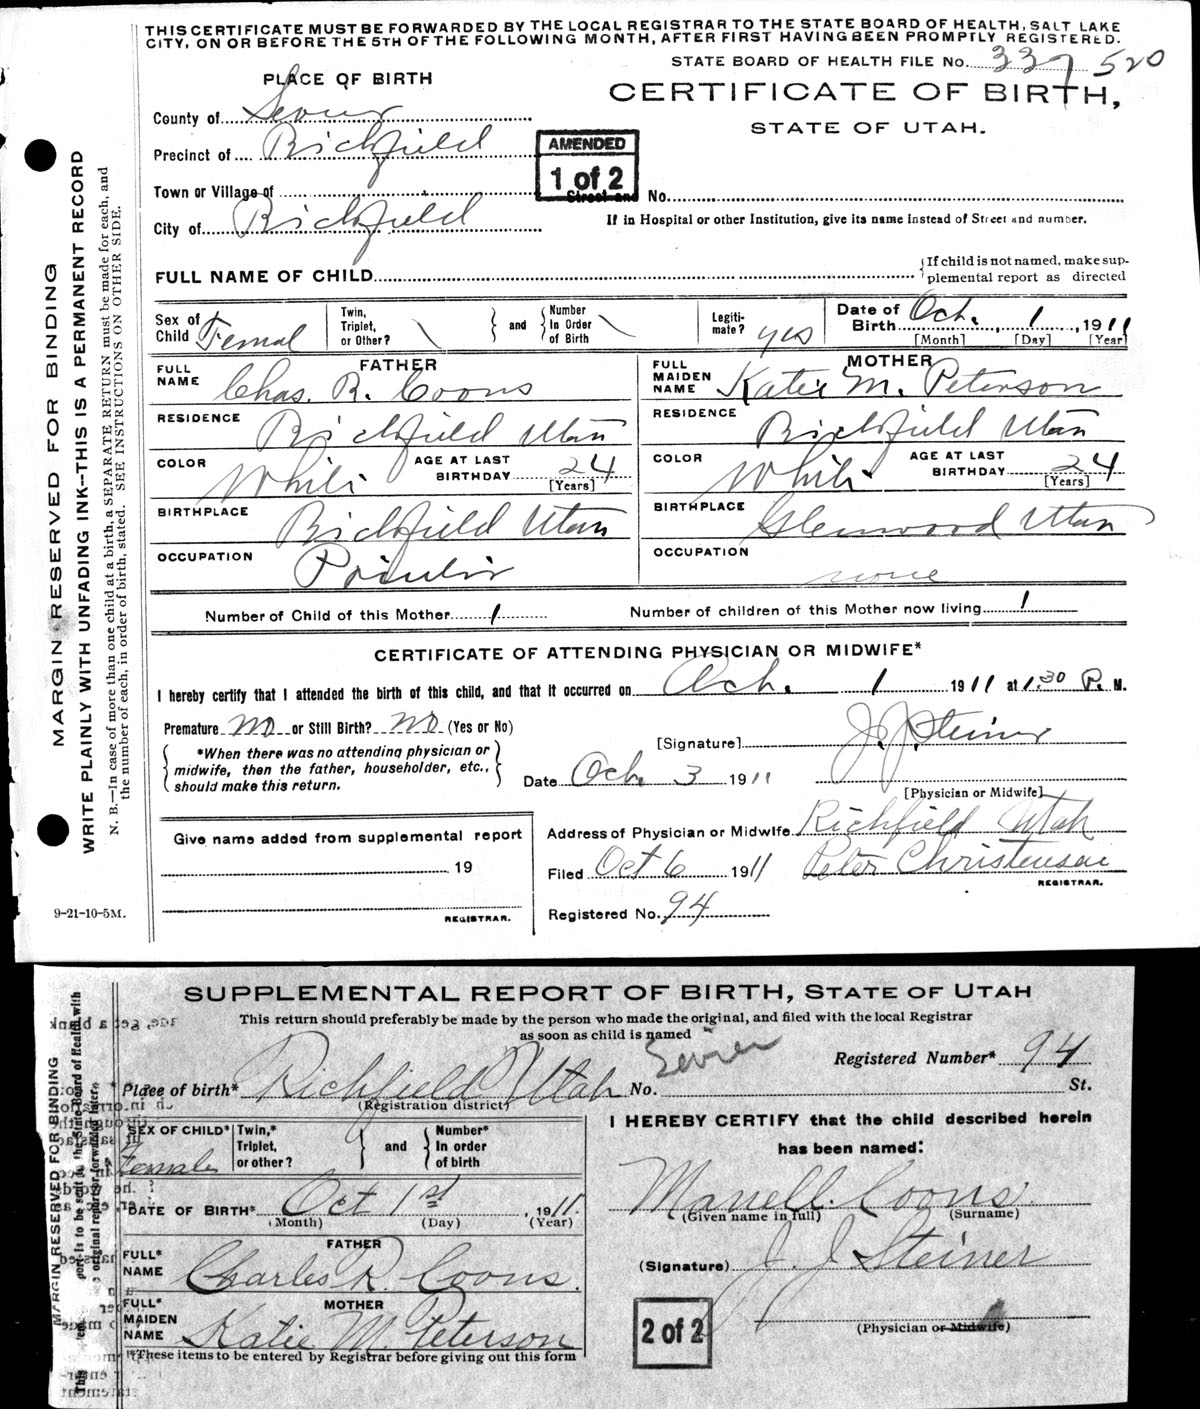 THIS CERTIFICATE MUST BE FORWARDED BY THE LOCAL REGISTRAR TO THE STATE BOARD OF HEALTH, SALT LAKE
CITY, ON OR BEFORE THE 5TH OF THE FOLLOWING MONTH, AFTER FIRST HAVING BEEN PROMPTLY REGISTERED.
STATE BOARD OF HEALTH FILE No. 337520
PLACE OF BIRTH
CERTIFICATE OF BIRTH,
STATE OF UTAH.
County of Sevier
Precinct of Richfield
AMENDED
1 of 2
Town or Village of
Street and No.
City of Richfield
If in Hospital or other Institution, give its name instead of Street and number.
FULL NAME OF CHILD
If child is not named, make sup-
plemental report as directed
Sex of Child Femal
Twin, Triplet, or Other?
and
Number In Order of Birth
Legiti-mate? yes
Date of Birth Oct. 1, 1911
[Month] [Day] [Year]
FATHER
FULL NAME Chas. R. Coons
RESIDENCE Richfield Utah
COLOR White
AGE AT LAST BIRTHDAY 24
[Years]
BIRTHPLACE Richfield Utah
OCCUPATION
MOTHER
FULL MAIDEN NAME Katie M. Peterson
RESIDENCE Richfield Utah
COLOR White
AGE AT LAST BIRTHDAY 24
[Years]
BIRTHPLACE Glenwood Utah
OCCUPATION none
Number of Child of this Mother 1
Number of children of this Mother now living 1
CERTIFICATE OF ATTENDING PHYSICIAN OR MIDWIFE*
I hereby certify that I attended the birth of this child, and that it occurred on Oct. 1 1911 at 1.30 P. M.
Premature No or Still Birth? No (Yes or No)
*When there was no attending physician or
midwife, then the father, householder, etc.,
should make this return.
[Signature] J. J. Steiner
Date Oct. 3 1911
[Physician or Midwife]
Give name added from supplemental report
19
REGISTRAR.
Address of Physician or Midwife Richfield Utah
Filed Oct 6 1911 Peter Christensen
REGISTRAR.
Registered No. 94
9-21-10-5M.
MARGIN RESERVED FOR BINDING
WRITE PLAINLY WITH UNFADING INK--THIS IS A PERMANENT RECORD
N. B.—In case of more than one child at a birth, a SEPARATE RETURN must be made for each, and
the number of each, in order of birth, stated. SEE INSTRUCTIONS ON OTHER SIDE.
SUPPLEMENTAL REPORT OF BIRTH, STATE OF UTAH
This return should preferably be made by the person who made the original, and filed with the local Registrar
as soon as child is named
Sevier
Registered Number* 94
Place of birth* Richfield Utah No. St.
(Registration district)
SEX OF CHILD* Female
Twin,* Triplet, or other?
and
Number* In order of birth
DATE OF BIRTH* Oct 1st, 1911.
(Month) (Day) (Year)
FATHER
FULL* NAME Charles R. Coons.
MOTHER
FULL* MAIDEN NAME Katie M. Peterson
*These items to be entered by Registrar before giving out this form
I HEREBY CERTIFY that the child described herein
has been named:
Manell Coons.
(Given name in full) (Surname)
(Signature) J. J. Steiner
(Physician or Midwife)
2 of 2
MARGIN RESERVED FOR BINDING